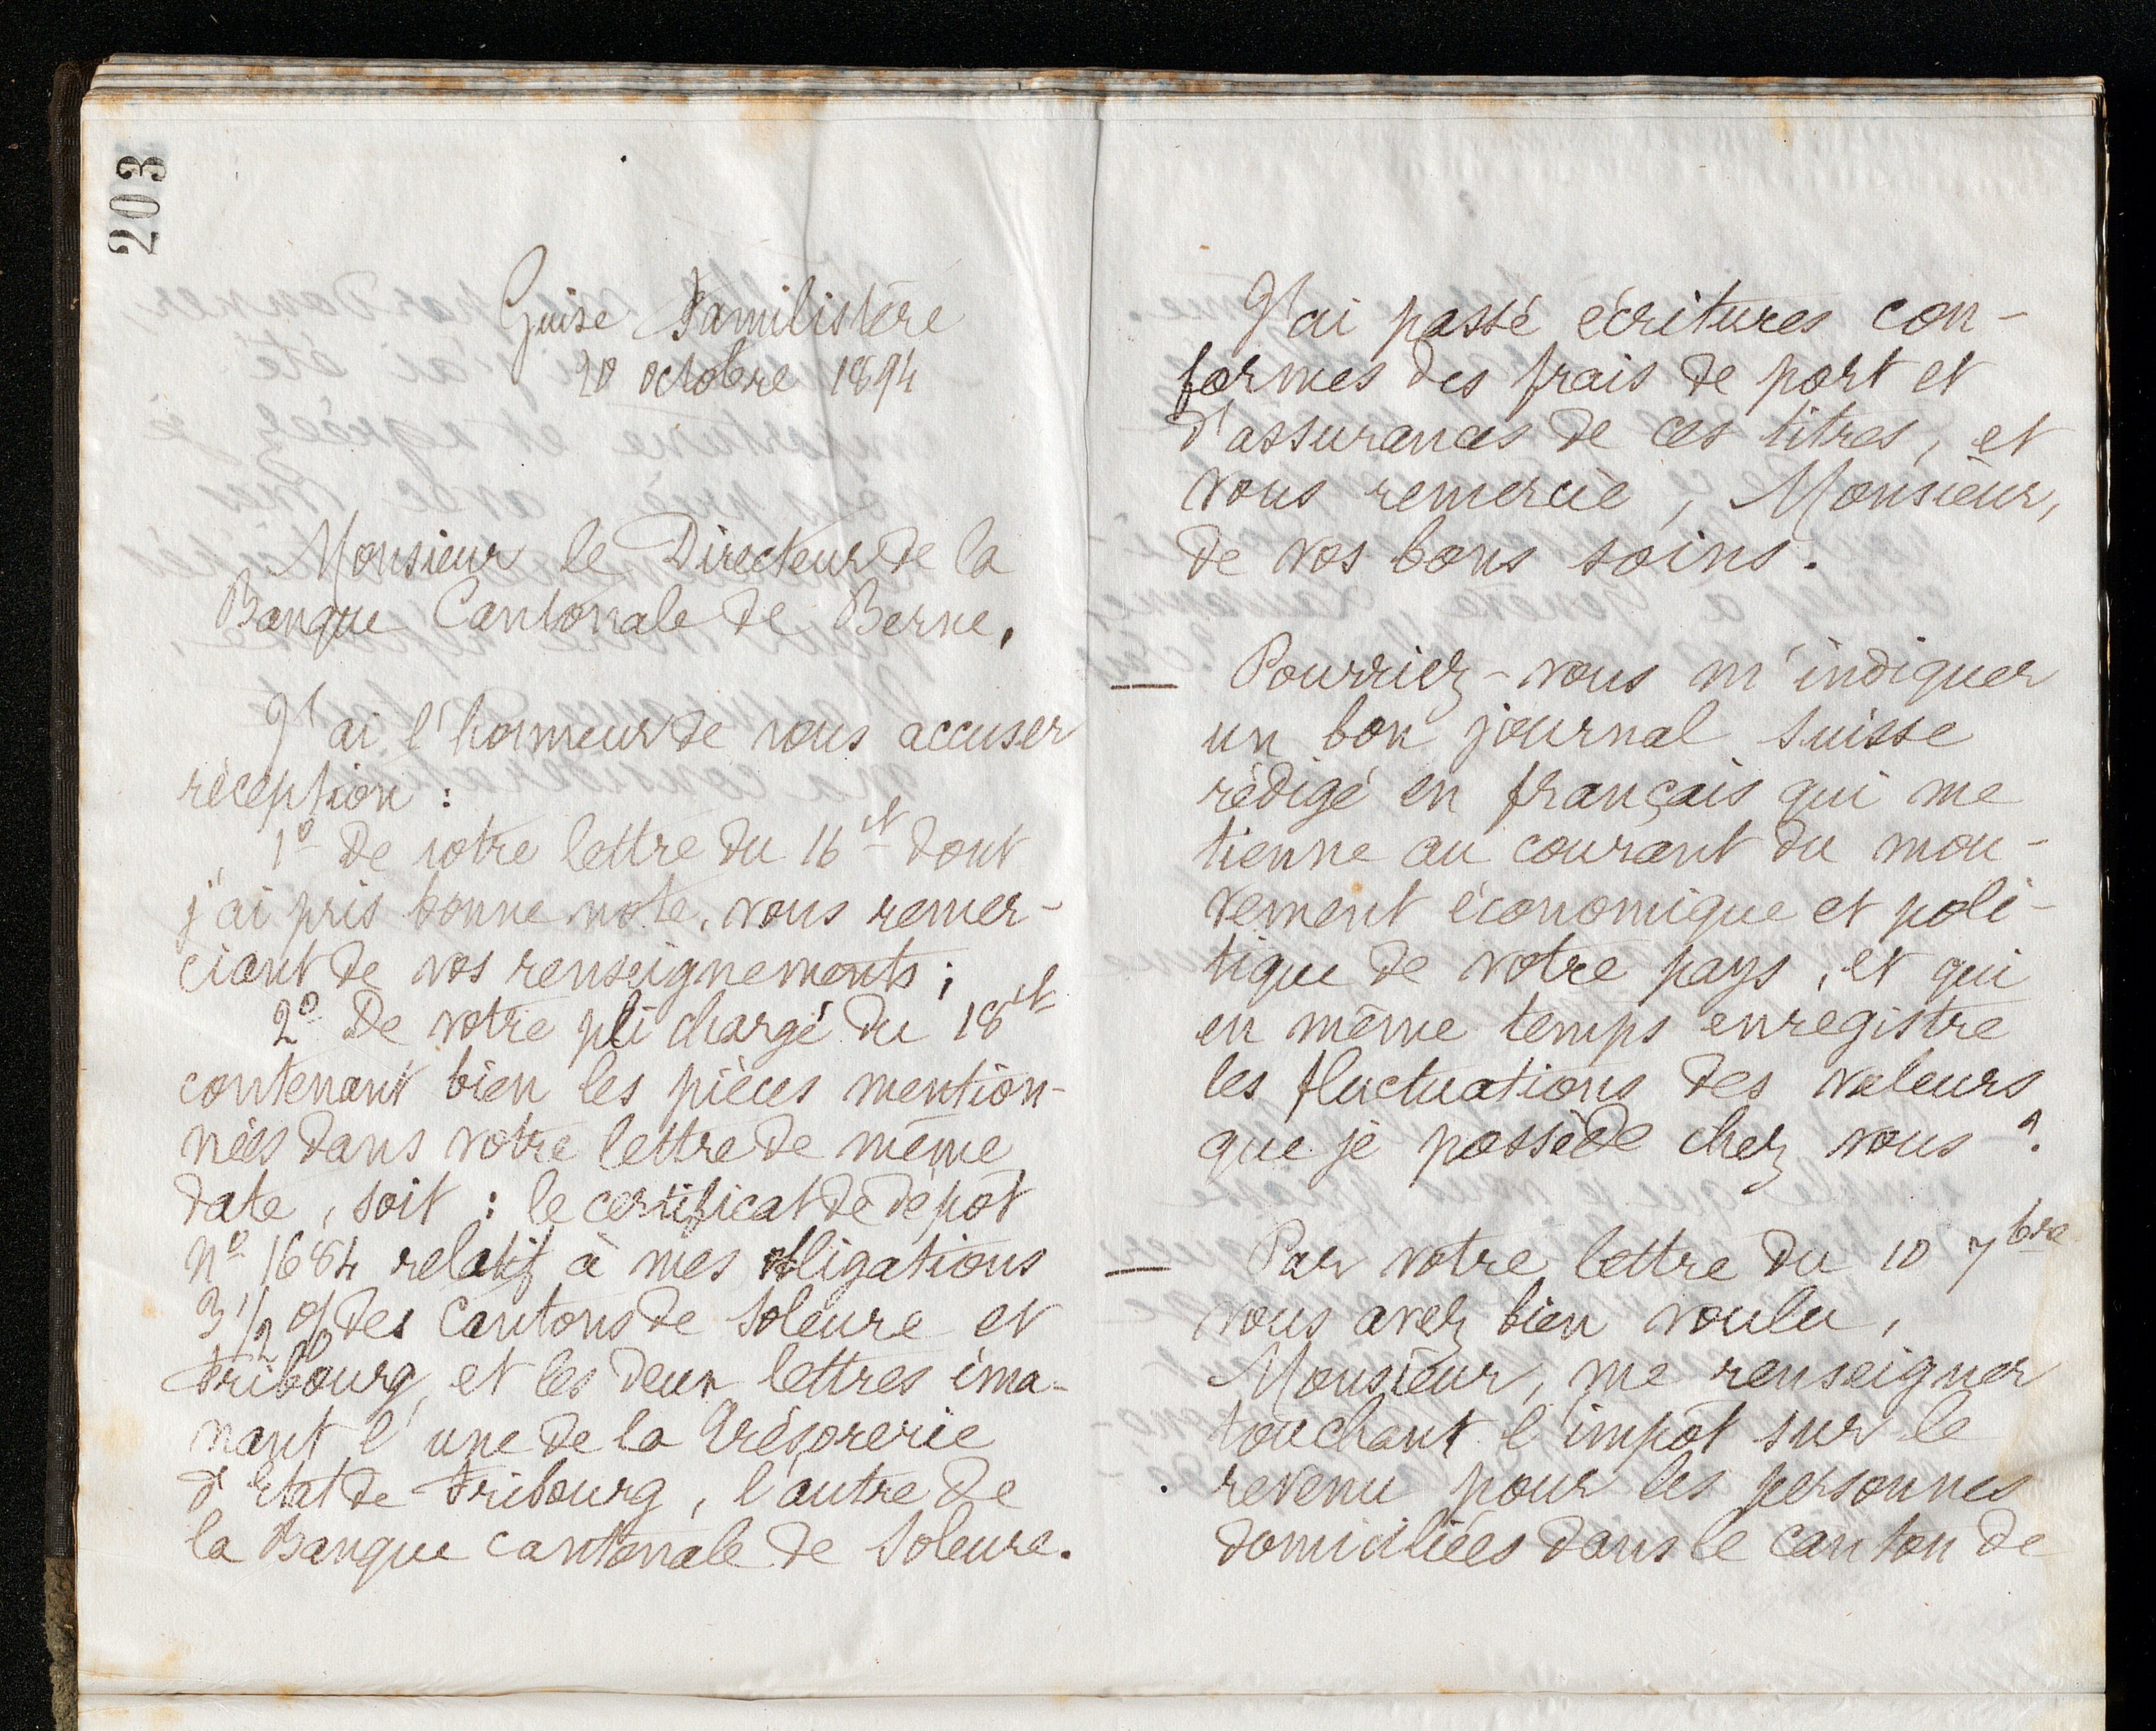 203
Guise Familistère
20 octobre 1894
Monsieur le Directeur de la
Banque Cantonale de Berne,
J'ai l'honneur de vous accuser
réception :
1º de votre lettre du 16 ct dont
j'ai pris bonne note, vous remer-
ciant de vos renseignements ;
2º De votre pli chargé du 18 ct
contenant bien les pièces mention-
nées dans votre lettre de même
date, soit : le certificat de dépôt
nº 1684 relatif à mes obligations
3 1/2 % des Cantons de Soleure et
Fribourg, et les deux lettres éma-
nant l'une de la Trésorerie
d'Etat de Fribourg, l'autre de
la Banque cantonale de Soleure.
J'ai passé écritures con-
formes des frais de port et
d'assurances de ces titres, et
vous remercie, Monsieur,
de vos bons soins.
— Pourriez-vous m'indiquer
un bon journal suisse
rédigé en français qui me
tienne au courant du mou-
vement économique et poli-
tique de votre pays, et qui
en même temps enregistre
les fluctuations des valeurs
que je possède chez vous ?
— Par votre lettre du 10 7bre
vous avez bien voulu,
Monsieur, me renseigner
touchant l'impôt sur le
revenu pour les personnes
domiciliées dans le canton de